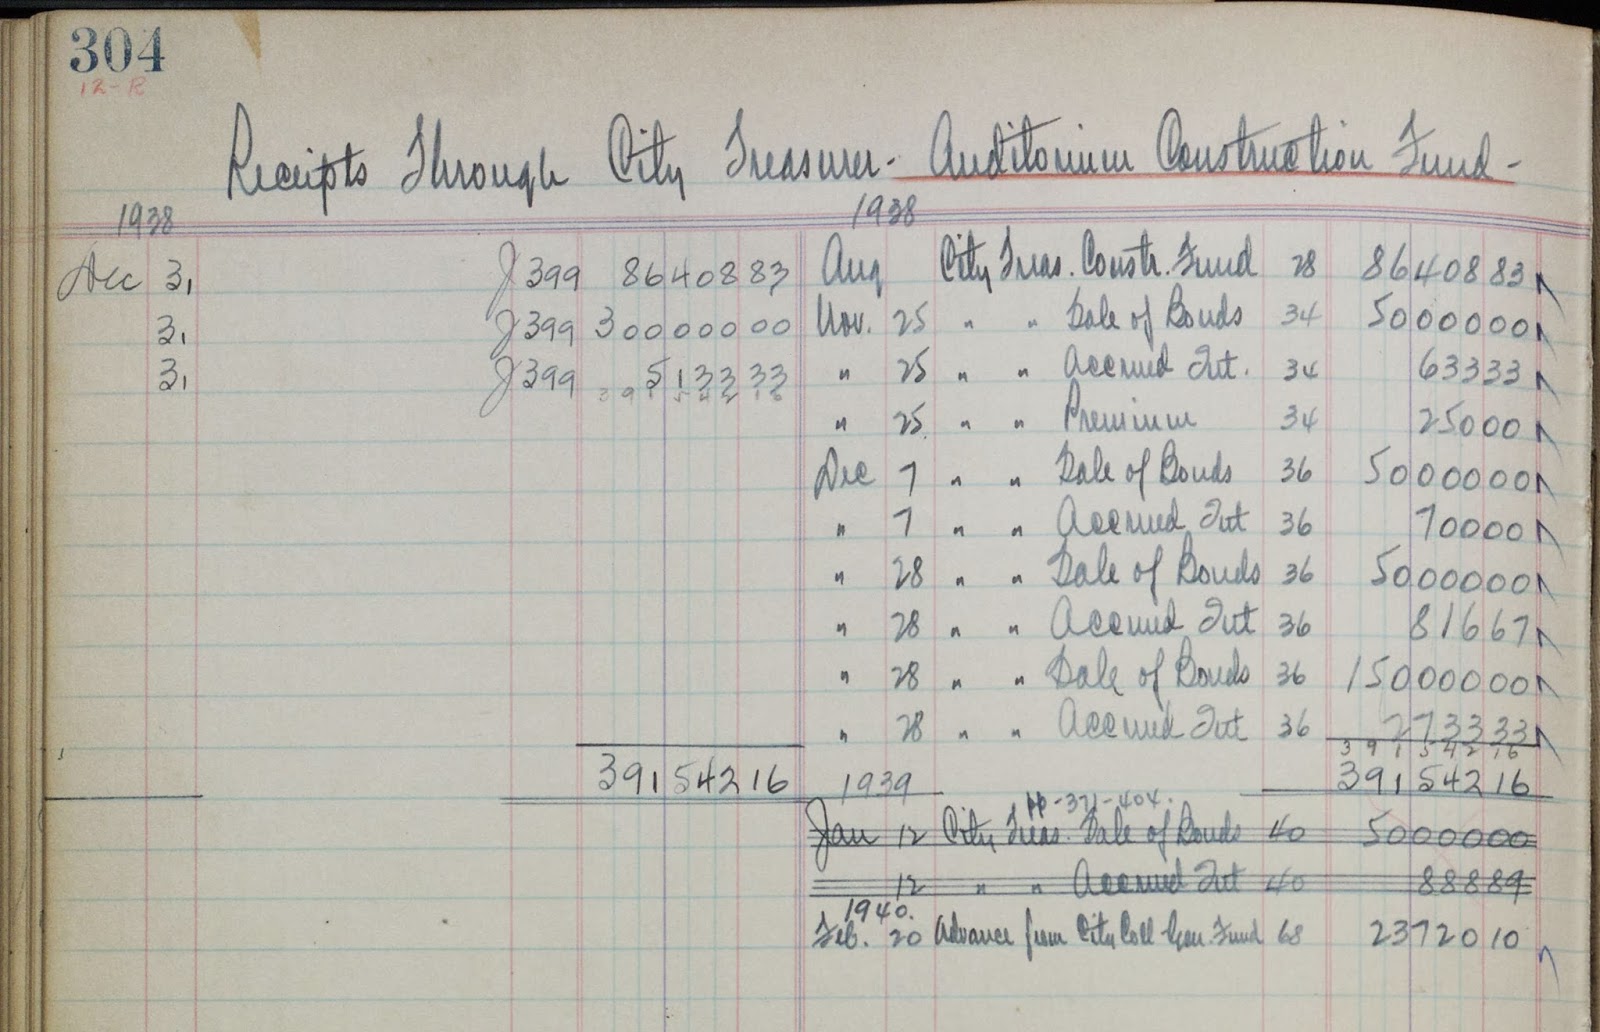 304
12-R
Receipts Through City Treasurer - Auditorium Construction Fund -
1938 1938
Dec 31 J399 86408 83 Aug City Treas. Constr. Fund 28 86408 83
31 J399 300000 00 Nov. 25 " " Sale of Bonds 34 50000 00
31 J399 5133 33 " 25 " " Accrued Int. 34 633 33
391542 16
" 25 " " Premium 34 250 00
Dec 7 " " Sale of Bonds 36 50000 00
" 7 " " Accrued Int 36 700 00
" 28 " " Sale of Bonds 36 50000 00
" 28 " " Accrued Int 36 816 67
" 28 " " Sale of Bonds 36 150000 00
" 28 " " Accrued Int 36 2733 33
391542 16
391542 16 1939 391542 16
pp-371-404.
Jan 12 City Treas. Sale of Bonds 40 50000 00
12 " " Accrued Int 40 888 89
1940.
Feb. 20 Advance from City Coll Gen. Fund 68 23720 10